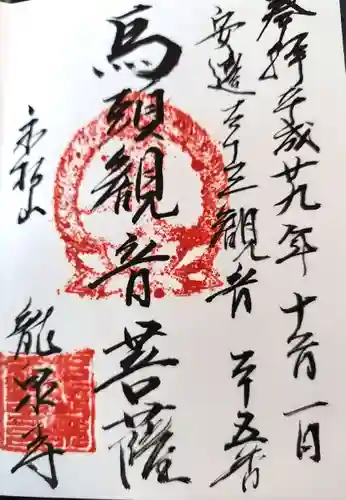 登拝平成廿九年十一月一日
安達三十三観音 二十五番
馬頭観音菩薩
永松山
龍泉寺